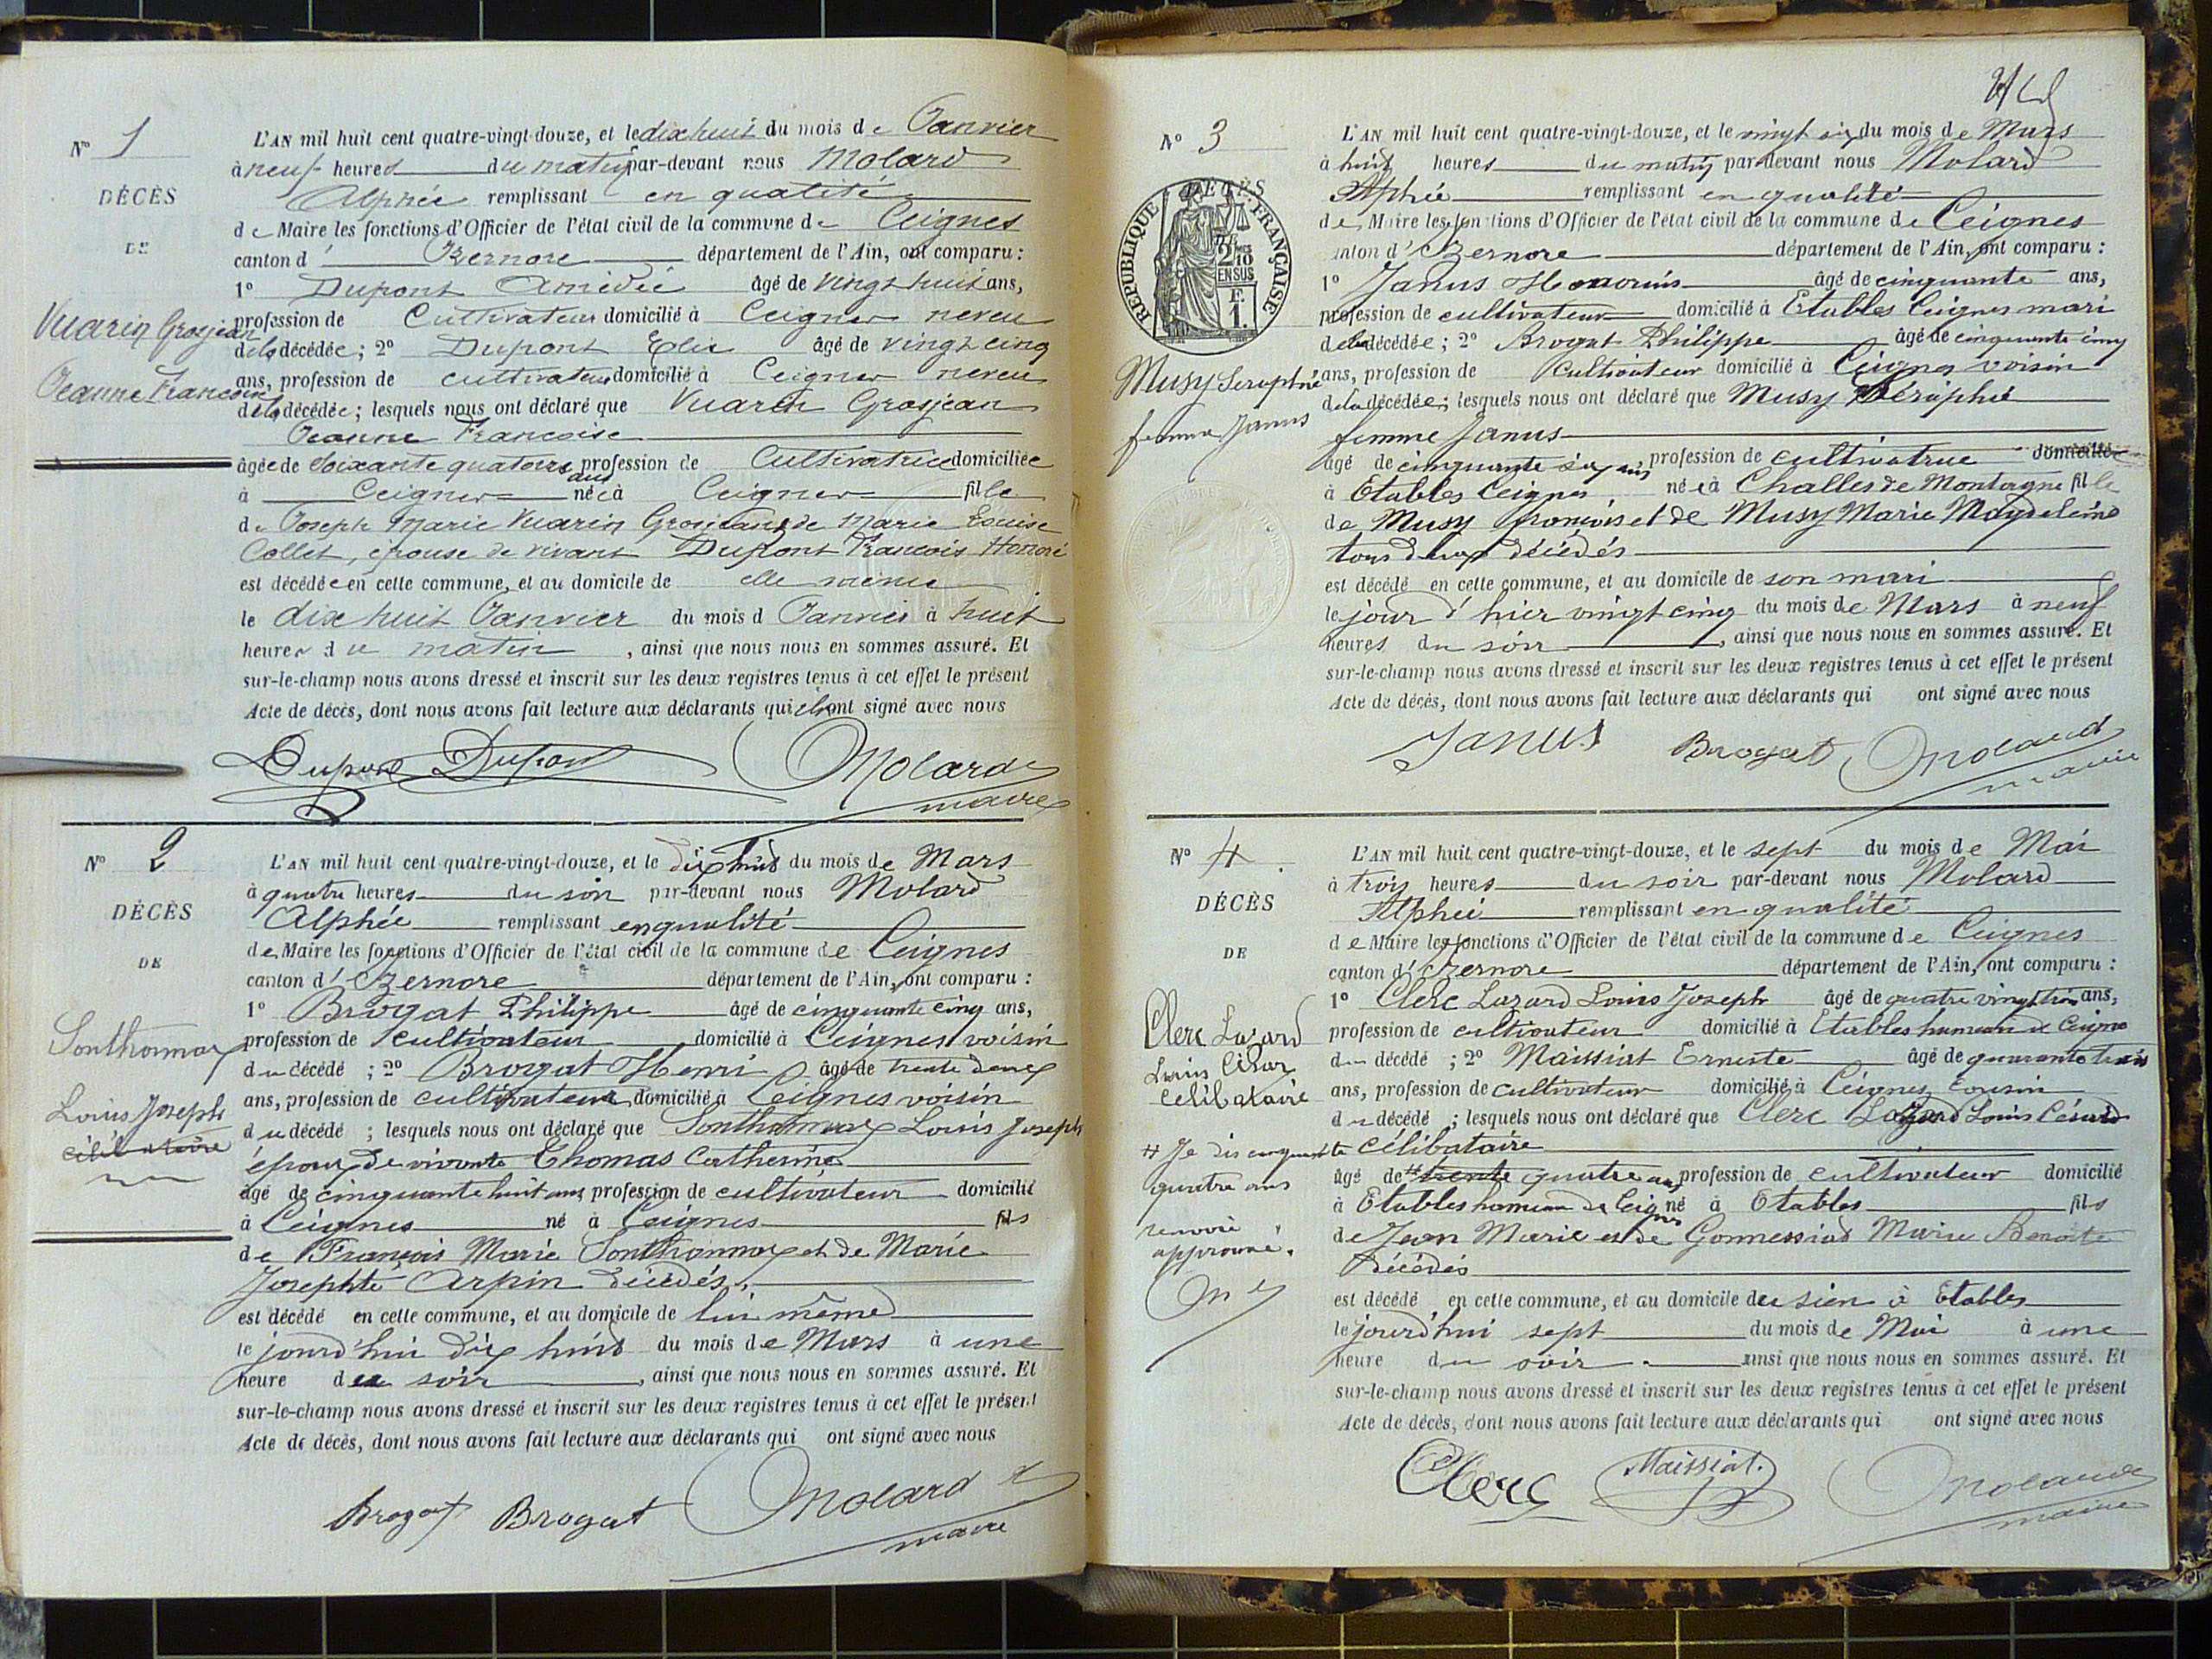 N° 1
DÉCÈS
DE
Vuarin Grosjean
Jeanne Francoise
L'AN mil huit cent quatre-vingt-douze, et le dix huit du mois de Janvier
à neuf heures du matin par-devant nous Molard
Alphée remplissant en qualité
de Maire les fonctions d'Officier de l'état civil de la commune de Ceignes
canton d' Izernore département de l'Ain, ont comparu :
1° Dupont Amédée âgé de vingt huit ans,
profession de Cultivateur domicilié à Ceignes neveu
de la décédée ; 2° Dupont Elie âgé de vingt cinq
ans, profession de cultivateur domicilié à Ceignes neveu
de la décédée ; lesquels nous ont déclaré que Vuarin Grosjean
Jeanne Francoise
âgée de soixante quatorze ans profession de Cultivatrice domiciliée
à Ceignes née à Ceignes fille
de Joseph Marie Vuarin Grosjean et de Marie Louise
Collet, épouse de vivant Dupont Francois Honoré
est décédée en cette commune, et au domicile de elle même
le dix huit Janvier du mois d Janvier à huit
heures du matin , ainsi que nous nous en sommes assuré. Et
sur-le-champ nous avons dressé et inscrit sur les deux registres tenus à cet effet le présent
Acte de décès, dont nous avons fait lecture aux déclarants qui ont signé avec nous
Dupont Dupont Molard
maire
N° 2
DÉCÈS
DE
Sonthonnax
Louis Joseph
célibataire
L'AN mil huit cent quatre-vingt-douze, et le dix huit du mois de Mars
à quatre heures du soir par-devant nous Molard
Alphée remplissant en qualité
de Maire les fonctions d'Officier de l'état civil de la commune de Ceignes
canton d' Izernore département de l'Ain, ont comparu :
1° Brogat Philippe âgé de cinquante cinq ans,
profession de cultivateur domicilié à Ceignes voisin
du décédé ; 2° Brogat Henri âgé de trente deux
ans, profession de cultivateur domicilié à Ceignes voisin
du décédé ; lesquels nous ont déclaré que Sonthonnax Louis Joseph
époux de vivante Thomas Catherine
âgé de cinquante huit ans profession de cultivateur domicilié
à Ceignes né à Ceignes fils
de François Marie Sonthonnax et de Marie
Josephte Arpin décédés,
est décédé en cette commune, et au domicile de lui même
le jourd'hui dix huit du mois de Mars à une
heure du soir , ainsi que nous nous en sommes assuré. Et
sur-le-champ nous avons dressé et inscrit sur les deux registres tenus à cet effet le présent
Acte de décès, dont nous avons fait lecture aux déclarants qui ont signé avec nous
Brogat Brogat Molard
maire
N° 3
DÉCÈS
RÉPUBLIQUE FRANÇAISE
2/10
EN SUS
F.
1.
Musy Seraphie
femme Janus
L'AN mil huit cent quatre-vingt-douze, et le vingt six du mois de Mars
à huit heures du matin par-devant nous Molard
Alphée remplissant en qualité
de Maire les fonctions d'Officier de l'état civil de la commune de Ceignes
canton d' Izernore département de l'Ain, ont comparu :
1° Janus Honorius âgé de cinquante ans,
profession de cultivateur domicilié à Etables Ceignes mari
de la décédée ; 2° Brogat Philippe âgé de cinquante cinq
ans, profession de Cultivateur domicilié à Ceignes voisin
de la décédée ; lesquels nous ont déclaré que Musy Séraphie
femme Janus
âgé de cinquante six ans, profession de cultivatrice domiciliée
à Etables Ceignes née à Challes de Montagne fille
de Musy François et de Musy Marie Magdeleine
tous deux décédés
est décédé en cette commune, et au domicile de son mari
le jour d'hier vingt cinq du mois de Mars à neuf
heures du soir , ainsi que nous nous en sommes assuré. Et
sur-le-champ nous avons dressé et inscrit sur les deux registres tenus à cet effet le présent
Acte de décès, dont nous avons fait lecture aux déclarants qui ont signé avec nous
Janus Brogat Molard
maire
N° 4
DÉCÈS
DE
Clerc Lazard
Louis César
célibataire
# Je dis cinquante
quatre ans
renvoi
approuvé.
L'AN mil huit cent quatre-vingt-douze, et le sept du mois de Mai
à trois heures du soir par-devant nous Molard
Alphée remplissant en qualité
de Maire les fonctions d'Officier de l'état civil de la commune de Ceignes
canton d' Izernore département de l'Ain, ont comparu :
1° Clerc Lazard Louis Joseph âgé de quatre vingt trois ans,
profession de cultivateur domicilié à Etables hameau de Ceignes
du décédé ; 2° Maissiat Erneste âgé de quarante trois
ans, profession de cultivateur domicilié à Ceignes cousin
du décédé ; lesquels nous ont déclaré que Clerc Lazard Louis César
célibataire
âgé de # trente quatre ans profession de cultivateur domicilié
à Etables hameau de Ceignes né à Etables fils
de Jean Marie et de Gonnessiat Marie Benoite
Décédés
est décédé en cette commune, et au domicile du sien à Etables
le jourd'hui sept du mois de Mai à une
heure du soir ainsi que nous nous en sommes assuré. Et
sur-le-champ nous avons dressé et inscrit sur les deux registres tenus à cet effet le présent
Acte de décès, dont nous avons fait lecture aux déclarants qui ont signé avec nous
Clerc Maissiat. Molard
maire